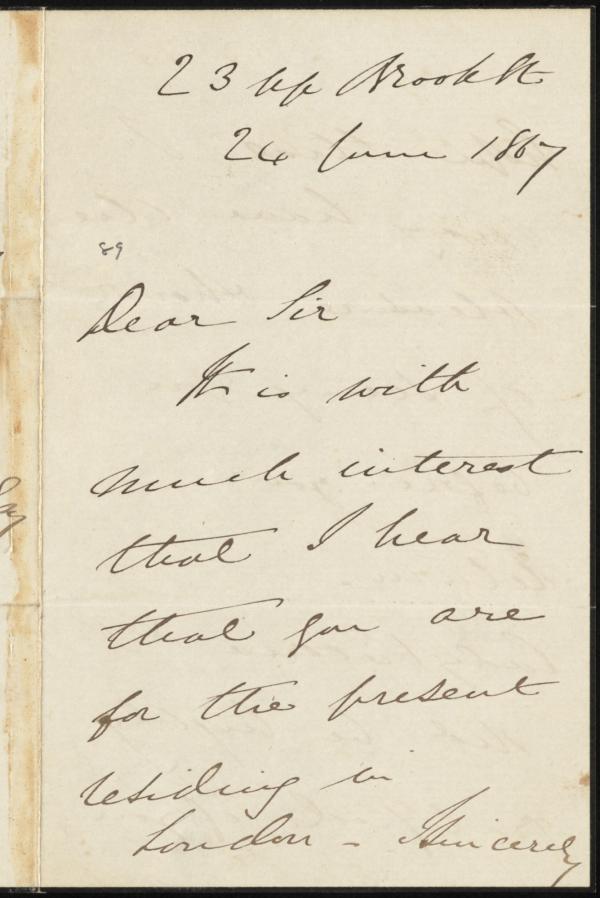 23 Up Brook St
24 June 1867
89
Dear Sir
It is with
much interest
that I hear
that you are
for the present
residing in
London - Sincerely